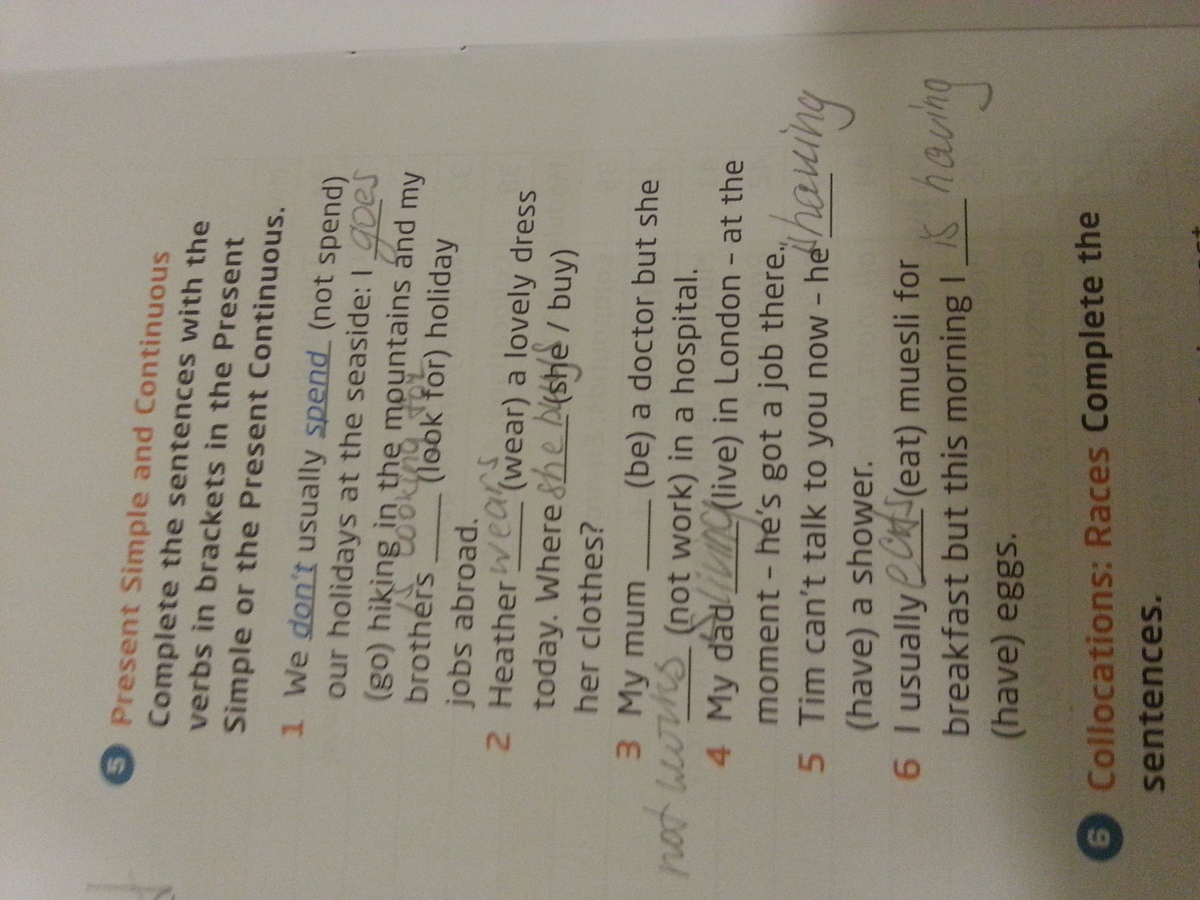 5 Present Simple and Continuous
Complete the sentences with the
verbs in brackets in the Present
Simple or the Present Continuous.
1 We don't usually spend (not spend)
our holidays at the seaside: I goes
(go) hiking in the mountains and my
brothers is looking for (look for) holiday
jobs abroad.
2 Heather wears (wear) a lovely dress
today. Where she buys (she / buy)
her clothes?
3 My mum ____ (be) a doctor but she
not works (not work) in a hospital.
4 My dad 's living (live) in London - at the
moment - he's got a job there.
5 Tim can't talk to you now - he 's having
(have) a shower.
6 I usually eats (eat) muesli for
breakfast but this morning I is having
(have) eggs.
6 Collocations: Races Complete the
sentences.